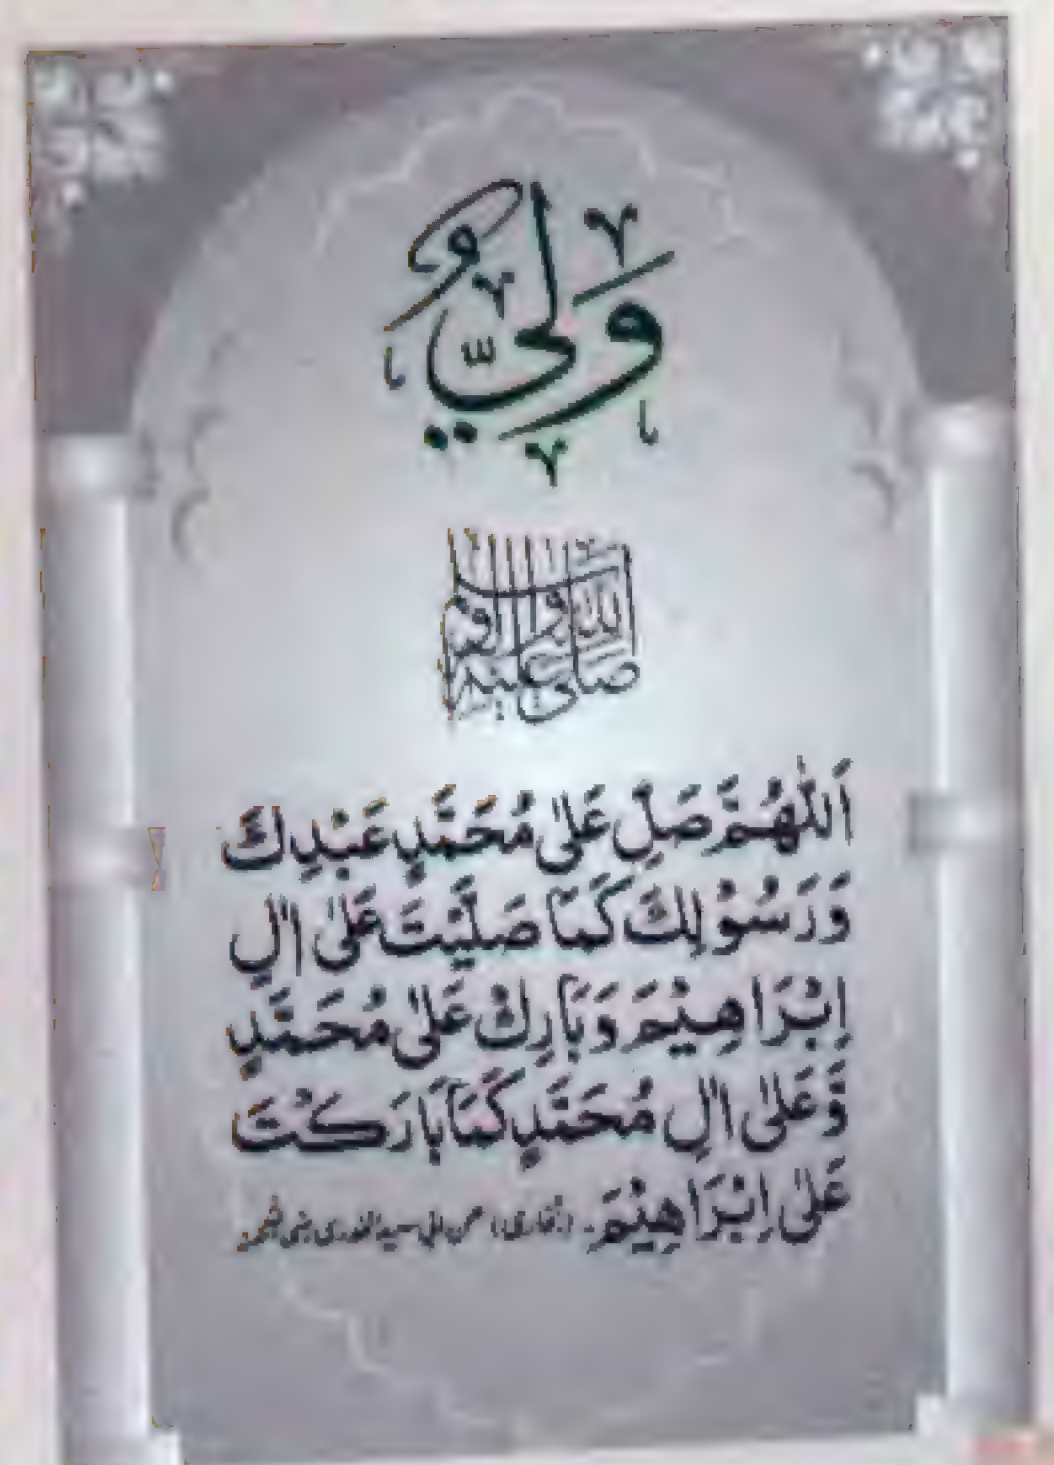 وَلِيٌّ
صلى الله عليه وآله وسلم
اَللّٰهُمَّ صَلِّ عَلٰى مُحَمَّدٍ عَبْدِكَ
وَرَسُوْلِكَ كَمَا صَلَّيْتَ عَلٰى اٰلِ
اِبْرَاهِيْمَ وَبَارِكْ عَلٰى مُحَمَّدٍ
وَّعَلٰى اٰلِ مُحَمَّدٍ كَمَا بَارَكْتَ
عَلٰى اِبْرَاهِيْمَ۔ (بخاری) عن ابی سعید الخدری